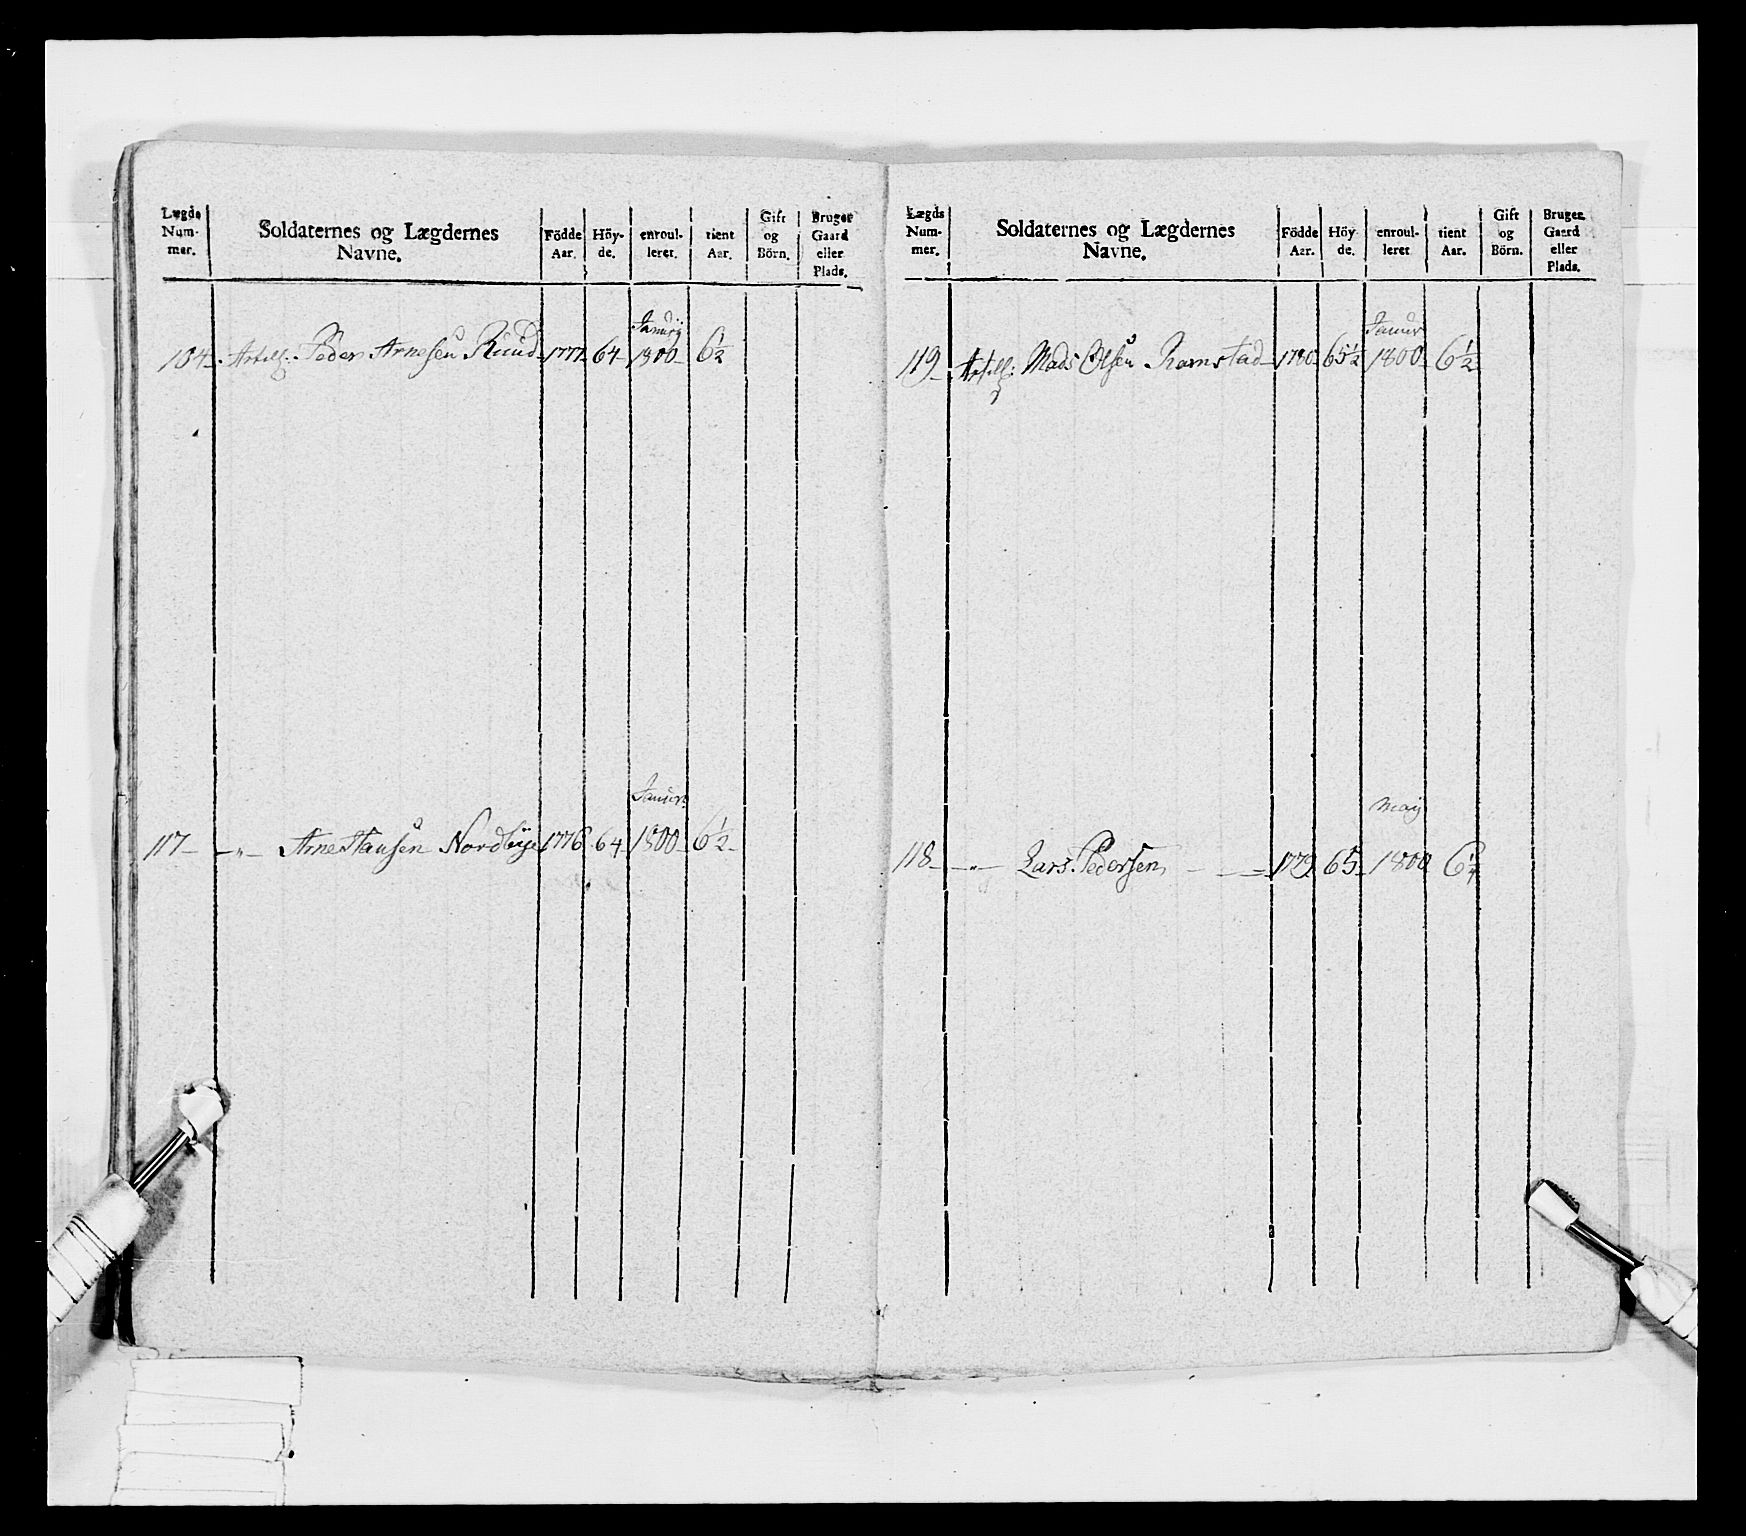 Lægds Num- mer. Soldaternes og Lægdernes Navne. Födde Aar. Höy- de. enroul- leret. tient Aar. Gift og Börn. Bruger Gaard eller Plads.
Janurÿ
104 Artill: Peder Arnesen Ruud 1777 64 1800 6½
Janur.
117 " Arne Hansen Nordbye 1776 64 1800 6½
Lægds Num- mer. Soldaternes og Lægdernes Navne. Födde Aar. Höy- de. enroul- leret tient Aar. Gift og Börn. Bruger Gaard eller Plads.
Janur
119 Artill: Mads Olsen Ramstad 1780 65½ 1800 6½
may
118 " Lars Pedersen 1779 65 1800 6¼